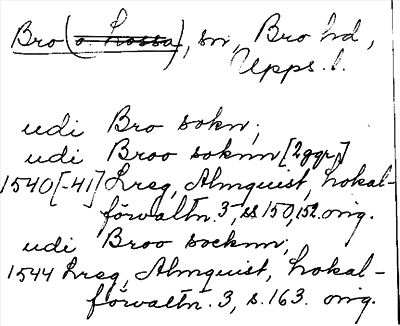 Bro (o. Lossa), sn, Bro hd,
Upps. l.
udi Bro sokn;
udi Broo soknn [2ggr]
1540[-41] Lreg, Almquist, Lokal-
förvaltn. 3, ss 150, 152 orig.
udi Broo socknn;
1544 Lreg, Almquist, Lokal-
förvaltn. 3, s. 163. orig.